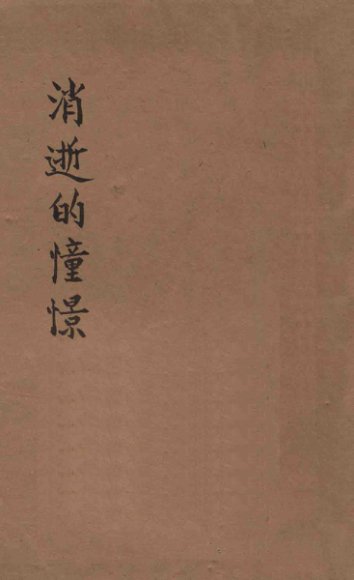 消逝的憧憬